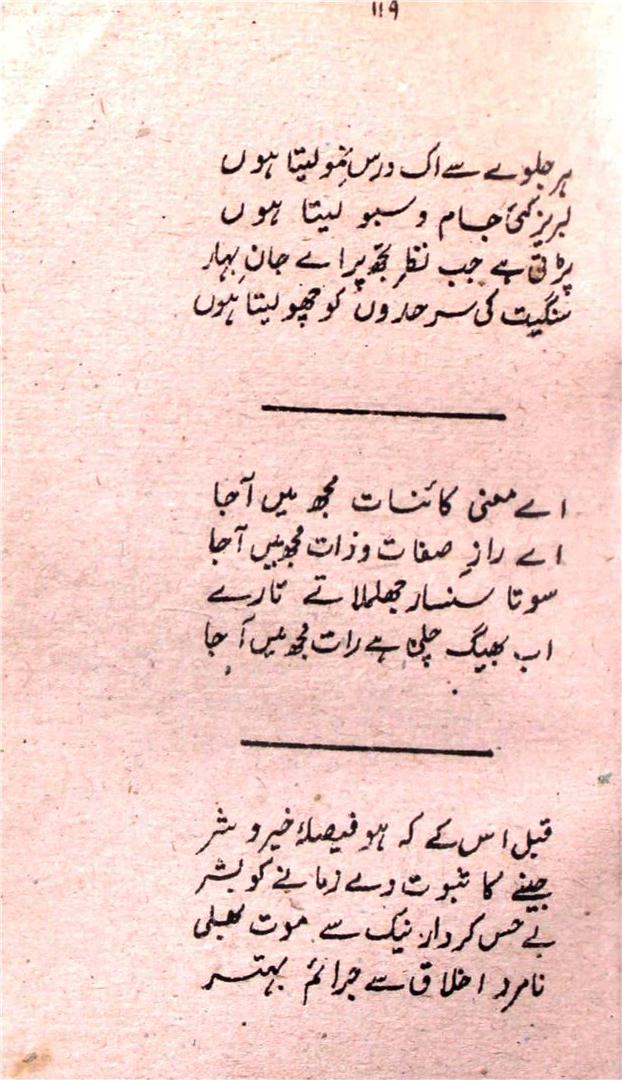 ۱۱۹
ہر جلوے سے اک درسِ نمو لیتا ہوں
لبریز کئی جام و سبو لیتا ہوں
پڑتی ہے جب نظر تجھ پر اے جانِ بہار
سنگیت کی سرحدوں کو چھو لیتا ہوں
اے معنی کائنات مجھ میں آجا
اے رازِ صفات و ذات مجھ میں آجا
سوتا سنسار جھلملاتے تارے
اب بھیگ چلی ہے رات مجھ میں آ جا
قبل اس کے کہ ہو فیصلۂ خیر و شر
جینے کا ثبوت دے زمانے کو بشر
بے حس کردار نیک سے موت بھلی
نامرد اخلاق سے جرائم بہتر